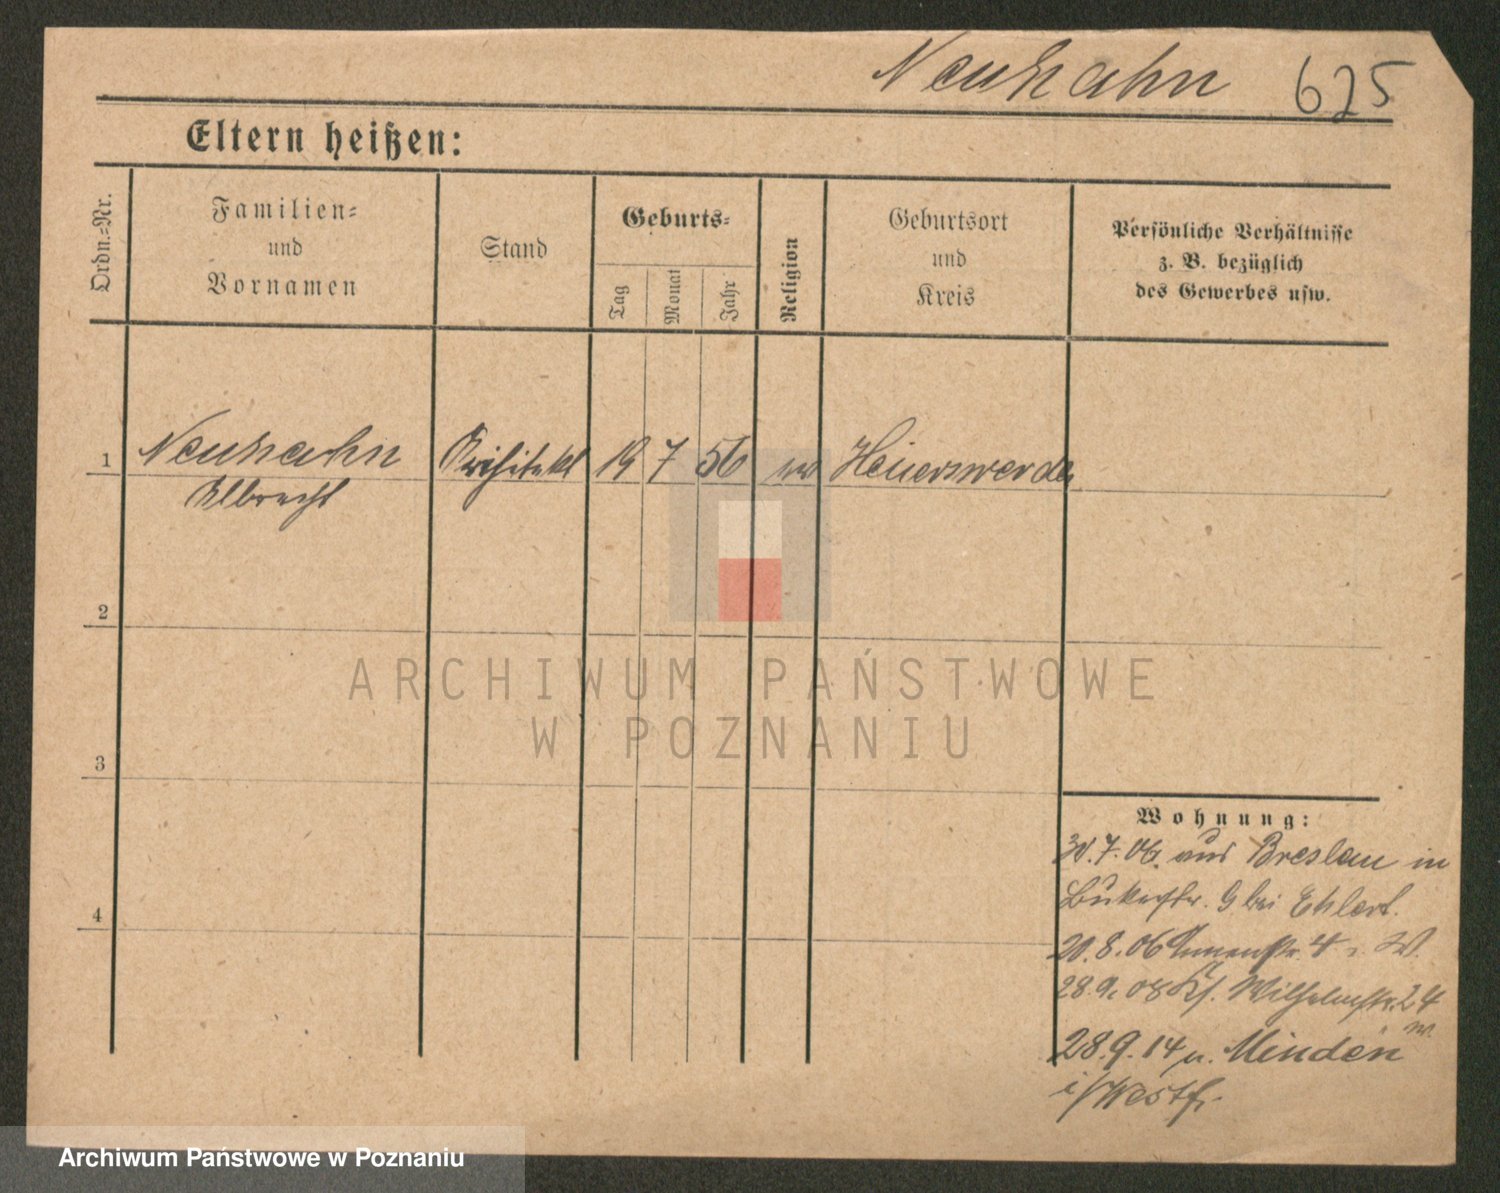 Neuhahn 675
Eltern heißen:
Ordn.=Nr.
Familien=
und
Vornamen
Stand
Geburts=
Tag
Monat
Jahr
Religion
Geburtsort
und
Kreis
Persönliche Verhältnisse
z. B. bezüglich
des Gewerbes usw.
1 Neuhahn Architekt 19 7 56 Heuerswerda
Albrecht
2
3
4
ARCHIWUM PAŃSTWOWE
W POZNANIU
Wohnung:
30.7.06. aus Breslau in
Bukerstr. 9 bei Ehlert.
20.8.06 4 W.
28.9.08 Wilhelmstr. 24
W.
28.9.14 n. Minden
i/Westf.
Archiwum Państwowe w Poznaniu